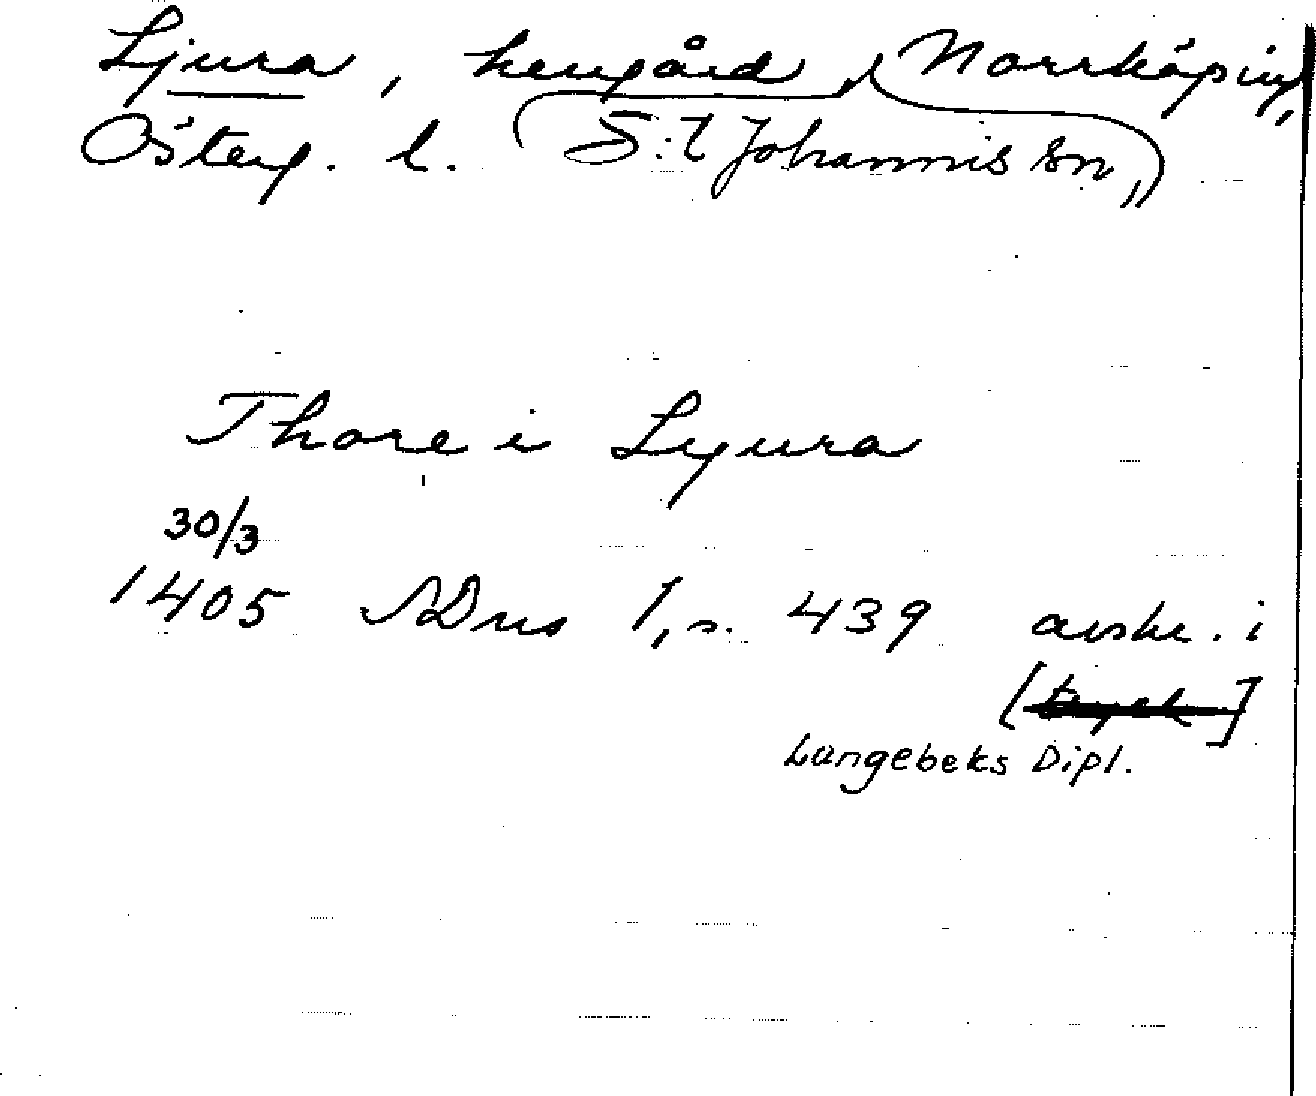 Ljura, herrgård, Norrköping,
Österg. l. (S:t Johannis sn,)
Thore i Lyura
30/3
1405 SDns 1, s. 439 avskr. i
[tryck]
Langebeks Dipl.